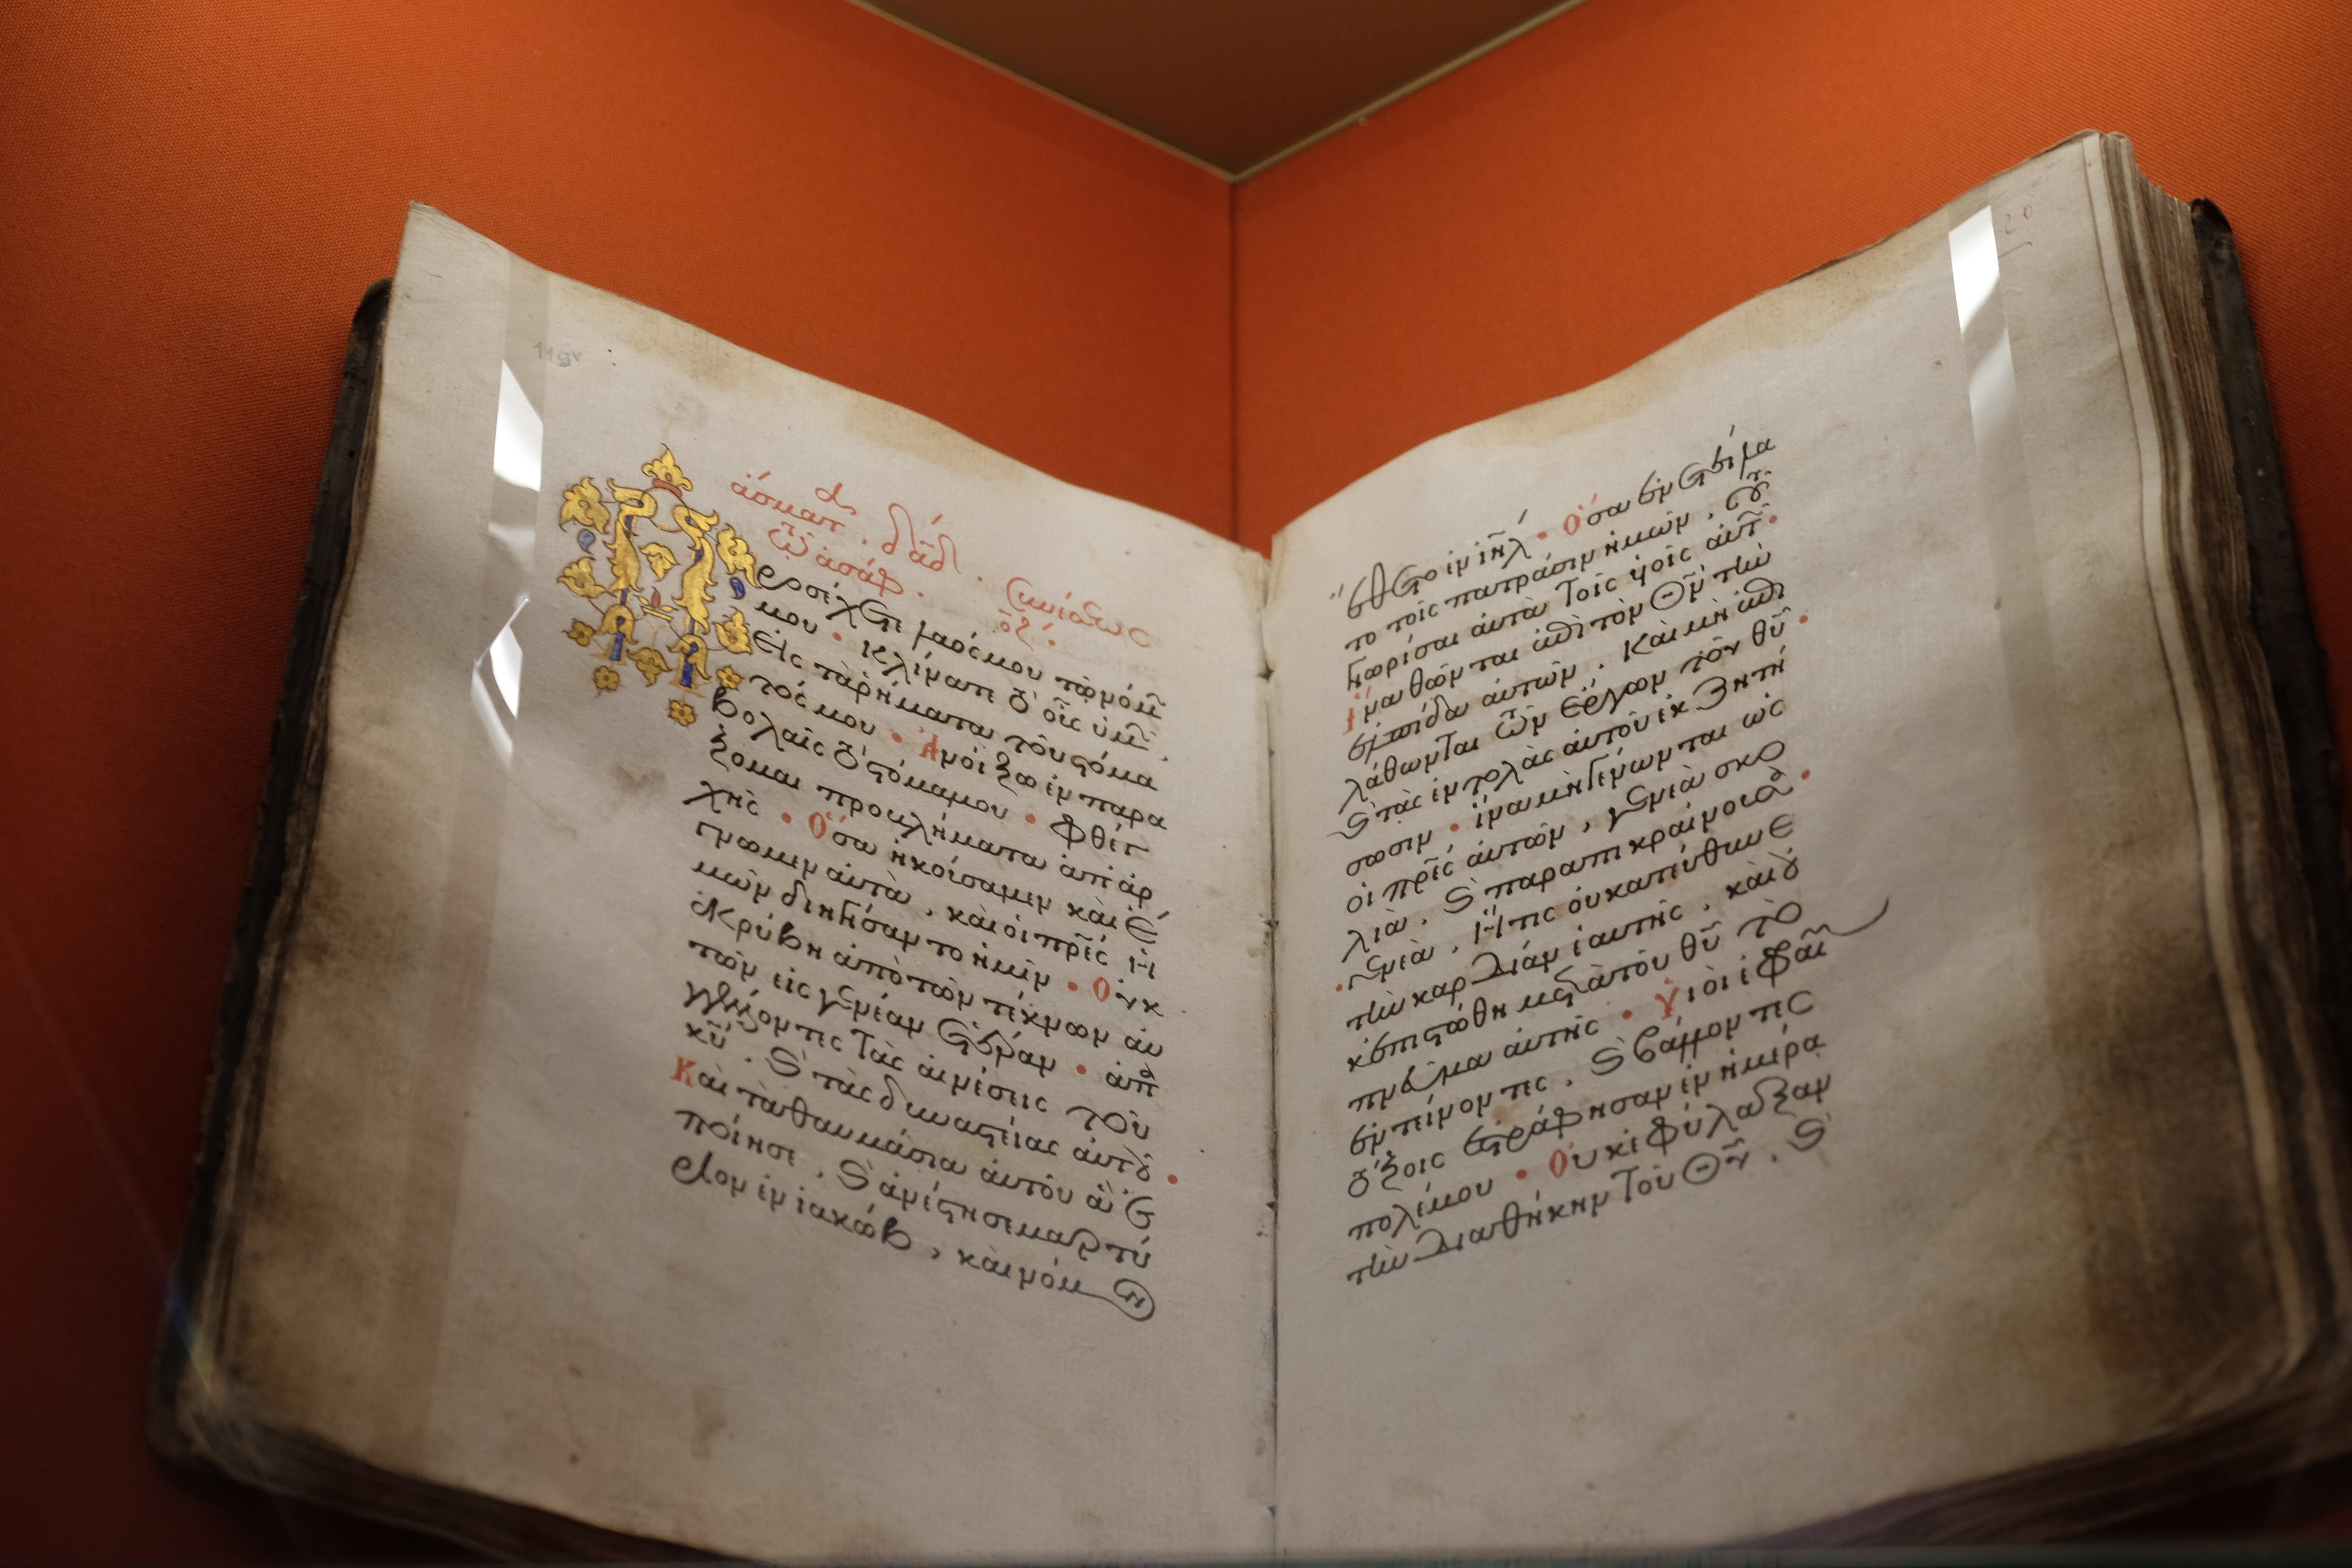 119v
ἄσματ. δᾱδ. Συνέσεως
τῶ ἀσάφ. οζ.
ροσέχετε λαός μου τῶ νόμω
μου · κλίνατε τὸ οὖς ὑμῶν.
Εἰς τὰ ῥήματα τοῦ στόμα
τός μου · Ἀνοίξω ἐν παρα
βολαῖς τὸ στόμα μου · Φθέγ
ξομαι προβλήματα ἀπ' ἀρ
χῆς · Ὅσα ἠκούσαμεν καὶ ἔ
γνωμεν αὐτὰ, καὶ οἱ πρ̅ε̅ς ἡ
μῶν διηγήσαντο ἡμῖν · Οὐκ
ἐκρύβη ἀπὸ τῶν τέκνων αὐ
τῶν εἰς γενεὰν ἑτέραν · ἀπα
γγέλλοντες τὰς αἰνέσεις τοῦ
κ̅υ̅. καὶ τὰς δυναστείας αὐτοῦ ·
Καὶ τὰ θαυμάσια αὐτοῦ ἃ ἐ
ποίησε. καὶ ἀνέστησε μαρτύ
ριον ἐν ἰακὼβ, καὶ νόμον
20
ἔθετο ἐν ἰη̅λ · Ὅσα ἐνετείλα
το τοῖς πατράσιν ἡμῶν. τοῦ
γνωρίσαι αὐτὰ τοῖς υἱοῖς αὐτῶν ·
Ἵνα θῶνται ἐπὶ τὸν Θ̅ν̅ τὴν
ἐλπίδα αὐτῶν. Καὶ μὴ ἐπι
λάθωνται τῶν ἔργων τοῦ θ̅υ̅ ·
καὶ τὰς ἐντολὰς αὐτοῦ ἐκζητή
σωσιν · ἵνα μὴ γένωνται ὡς
οἱ πρ̅ε̅ς αὐτῶν, γενεὰ σκο
λιὰ. καὶ παραπικραίνουσα ·
γενεὰ. Ἥτις οὐ κατεύθυνε
τὴν καρδίαν ἑαυτῆς. καὶ οὐ
κ ἐπιστώθη μετὰ τοῦ θ̅υ̅ τὸ
πνεῦμα αὐτῆς · Υἱοὶ ἐφραὶμ
ἐντείνοντες. καὶ βάλλοντες
τόξοις ἐστράφησαν ἐν ἡμέρα
πολέμου · Οὐκ ἐφύλαξαν
τὴν διαθήκην τοῦ Θ̅υ̅. καὶ